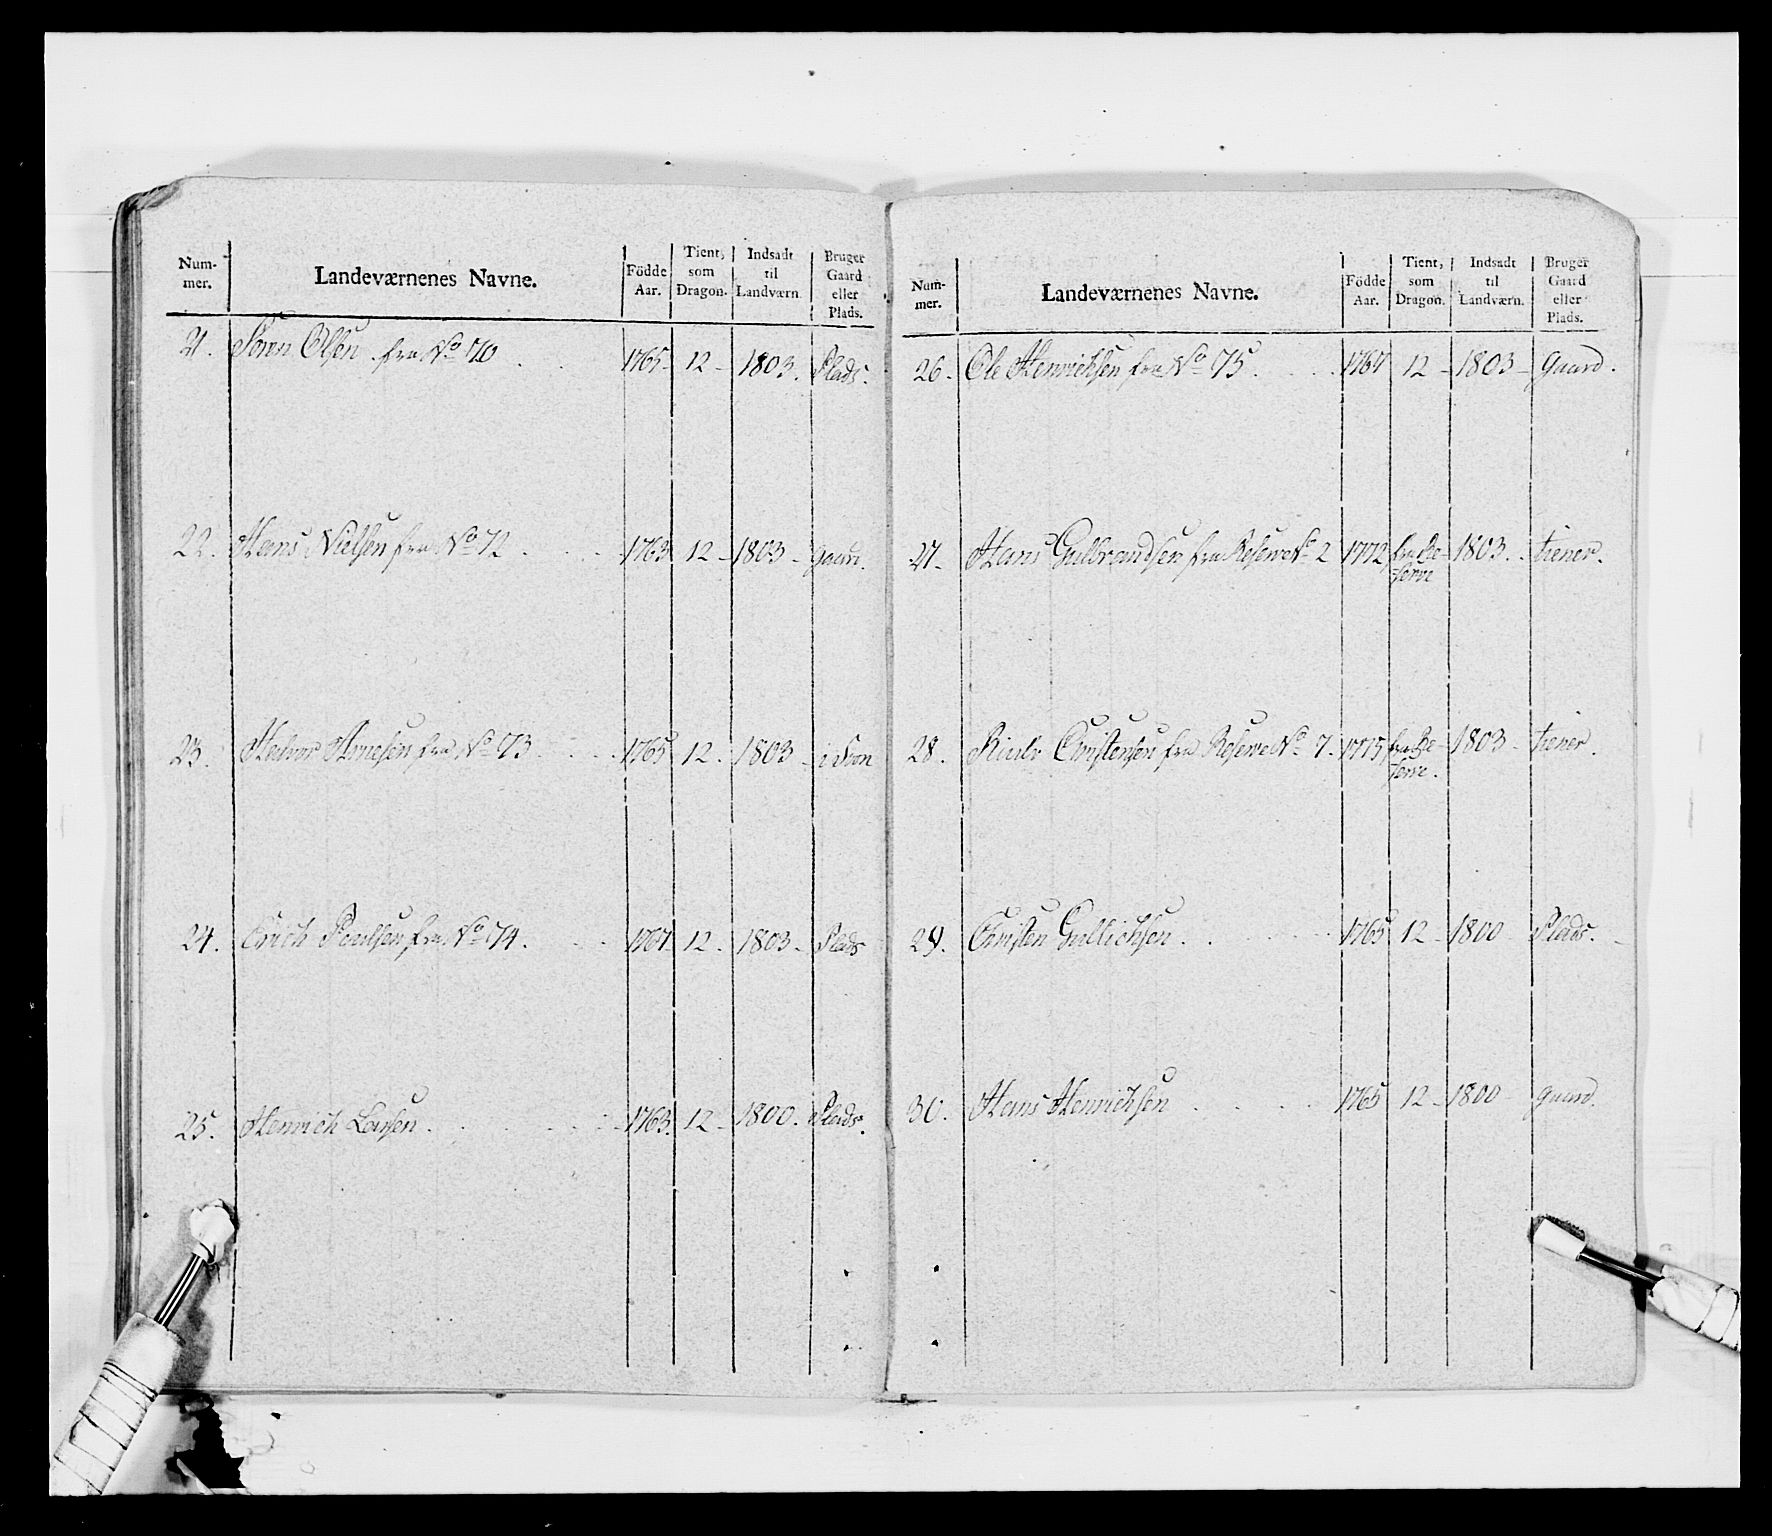 Num-
mer.
Landeværnenes Navne.
Födde
Aar.
Tient,
som
Dragon.
Indsadt
til
Landværn.
Bruger
Gaard
eller
Plads.
21. Sören Olsen fra No 70 1765 - 12 - 1803. Plads.
22. Hans Nielsen fra No 72 1763 12 - 1803 - gaard.
23. Halvor Arnesen fra No 73 1765 12. 1803 -
24. Erich Poulsen fra No 74. 1767 12. 1803 - Plads
25. Henrich Larsen 1763. 12 - 1800. Plads.
Num-
mer.
Landeværnenes Navne.
Födde
Aar.
Tient,
som
Dragon.
Indsadt
til
Landværn.
Bruger
Gaard
eller
Plads.
26. Ole Henrichsen fra No 75. 1767 12 - 1803 - Gaard.
27. Hans Gulbrandsen fra Reserve No 2 1772 fra Re- 1803. tiener.
serve
28. Christensen fra Reserve No 7. 1775 fra Re- 1803 - tiener.
serve.
29. Christen Gullichsen. 1765 12 - 1800 Plads.
30. Hans Henrichsen 1765 12 - 1800 gaard.